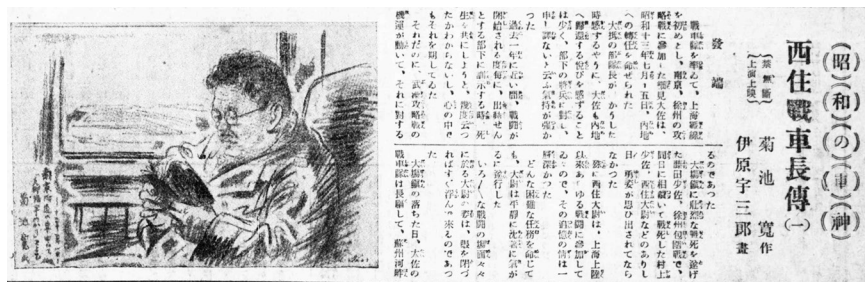 (昭和の軍神)
西住戰車長傳(一)
菊池寛作
伊原宇三郎畫
禁無斷
上演上映
發端
戰車隊を率ゐて、上海戰線
を初めとし、南京、徐州の攻
略戰に參加した細見大佐は、
昭和十三年七月一五日、内地
への轉任を命ぜられた
大抵の部隊長が、かうした
時感ずるやうに、大佐も内地
へ歸還する悅びを感ずること
は少く、部下の將兵に對し、
申し譯ないと云ふ氣持が强か
つた
過去一年に近い間、戰鬪が
開始される度毎に、出動せん
とする部下に訓示する時、死
生を共にしようと、幾度云つ
たかわからないし、心の中で
もそれを期してゐた
それだのに、武漢攻略戰の
機運が動いて、それに對する
るのであつた
大場鎭に壯烈な戰死を遂げ
た藤田少佐、徐州包圍戰で、
同日に相して戰死した村上
少佐、西住大尉などのありし
日の勇姿が思ひ出されてなら
なかつた
殊に西住大尉は、上海上陸
以來あらゆる戰鬪に參加して
ゐるので、その追憶の情は一
層深かつた
どんな困難な任務を命じて
も、大尉は平靜に沈着に氣が
るに遂行した
いろ〳〵な戰鬪の場面々々
に於る大尉の姿は、眼を閉づ
ればすぐ浮んで來るのであつ
た
大場鎭の落ちた日、大佐の
戰車隊は長驅して、蘇州河畔
菊池寛氏